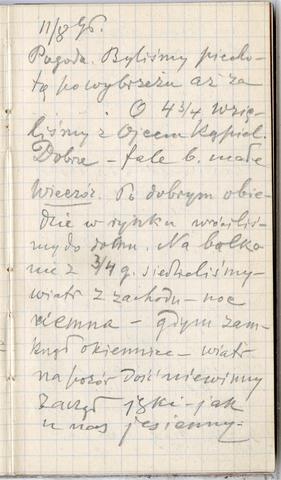 11/8 96.
Pogoda. Byliśmy piecho-
tą po wybrzeżu aż za
O 4 3/4 wzię-
liśmy z Ojcem Kąpiel.
Dobra – fale b. małe
Wieczór. Po dobrym obie-
dzie w rynku wróciliś-
my do domu. Na balko-
nie z 3/4 g. siedzieliśmy –
wiatr z zachodu – noc
ciemna – gdym zam-
knął okiennice – wiatr
na pozór dość niewinny
zaczął jęki – jak
u nas jesienny –